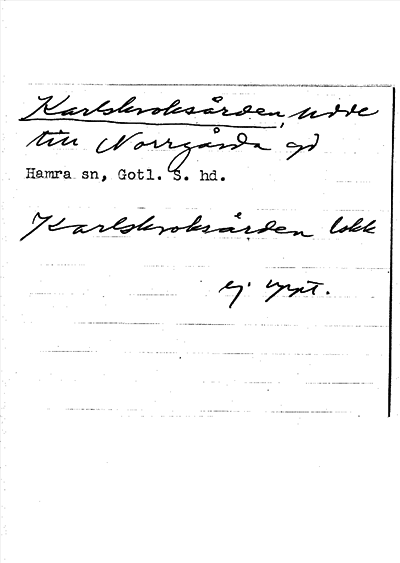 Karlskroksården, udde
till Norrgårda gd
Hamra sn, Gotl. S. hd.
Karlskroksården
ej uppt.